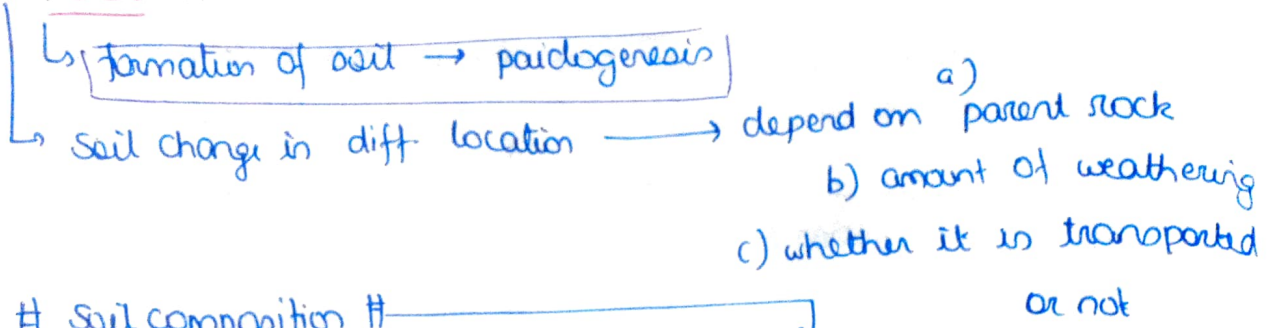 ↳ formation of soil → paidogenesis
↳ soil change in diff. location → depend on a) parent rock
b) amount of weathering
c) whether it is transported
or not
# Soil composition #